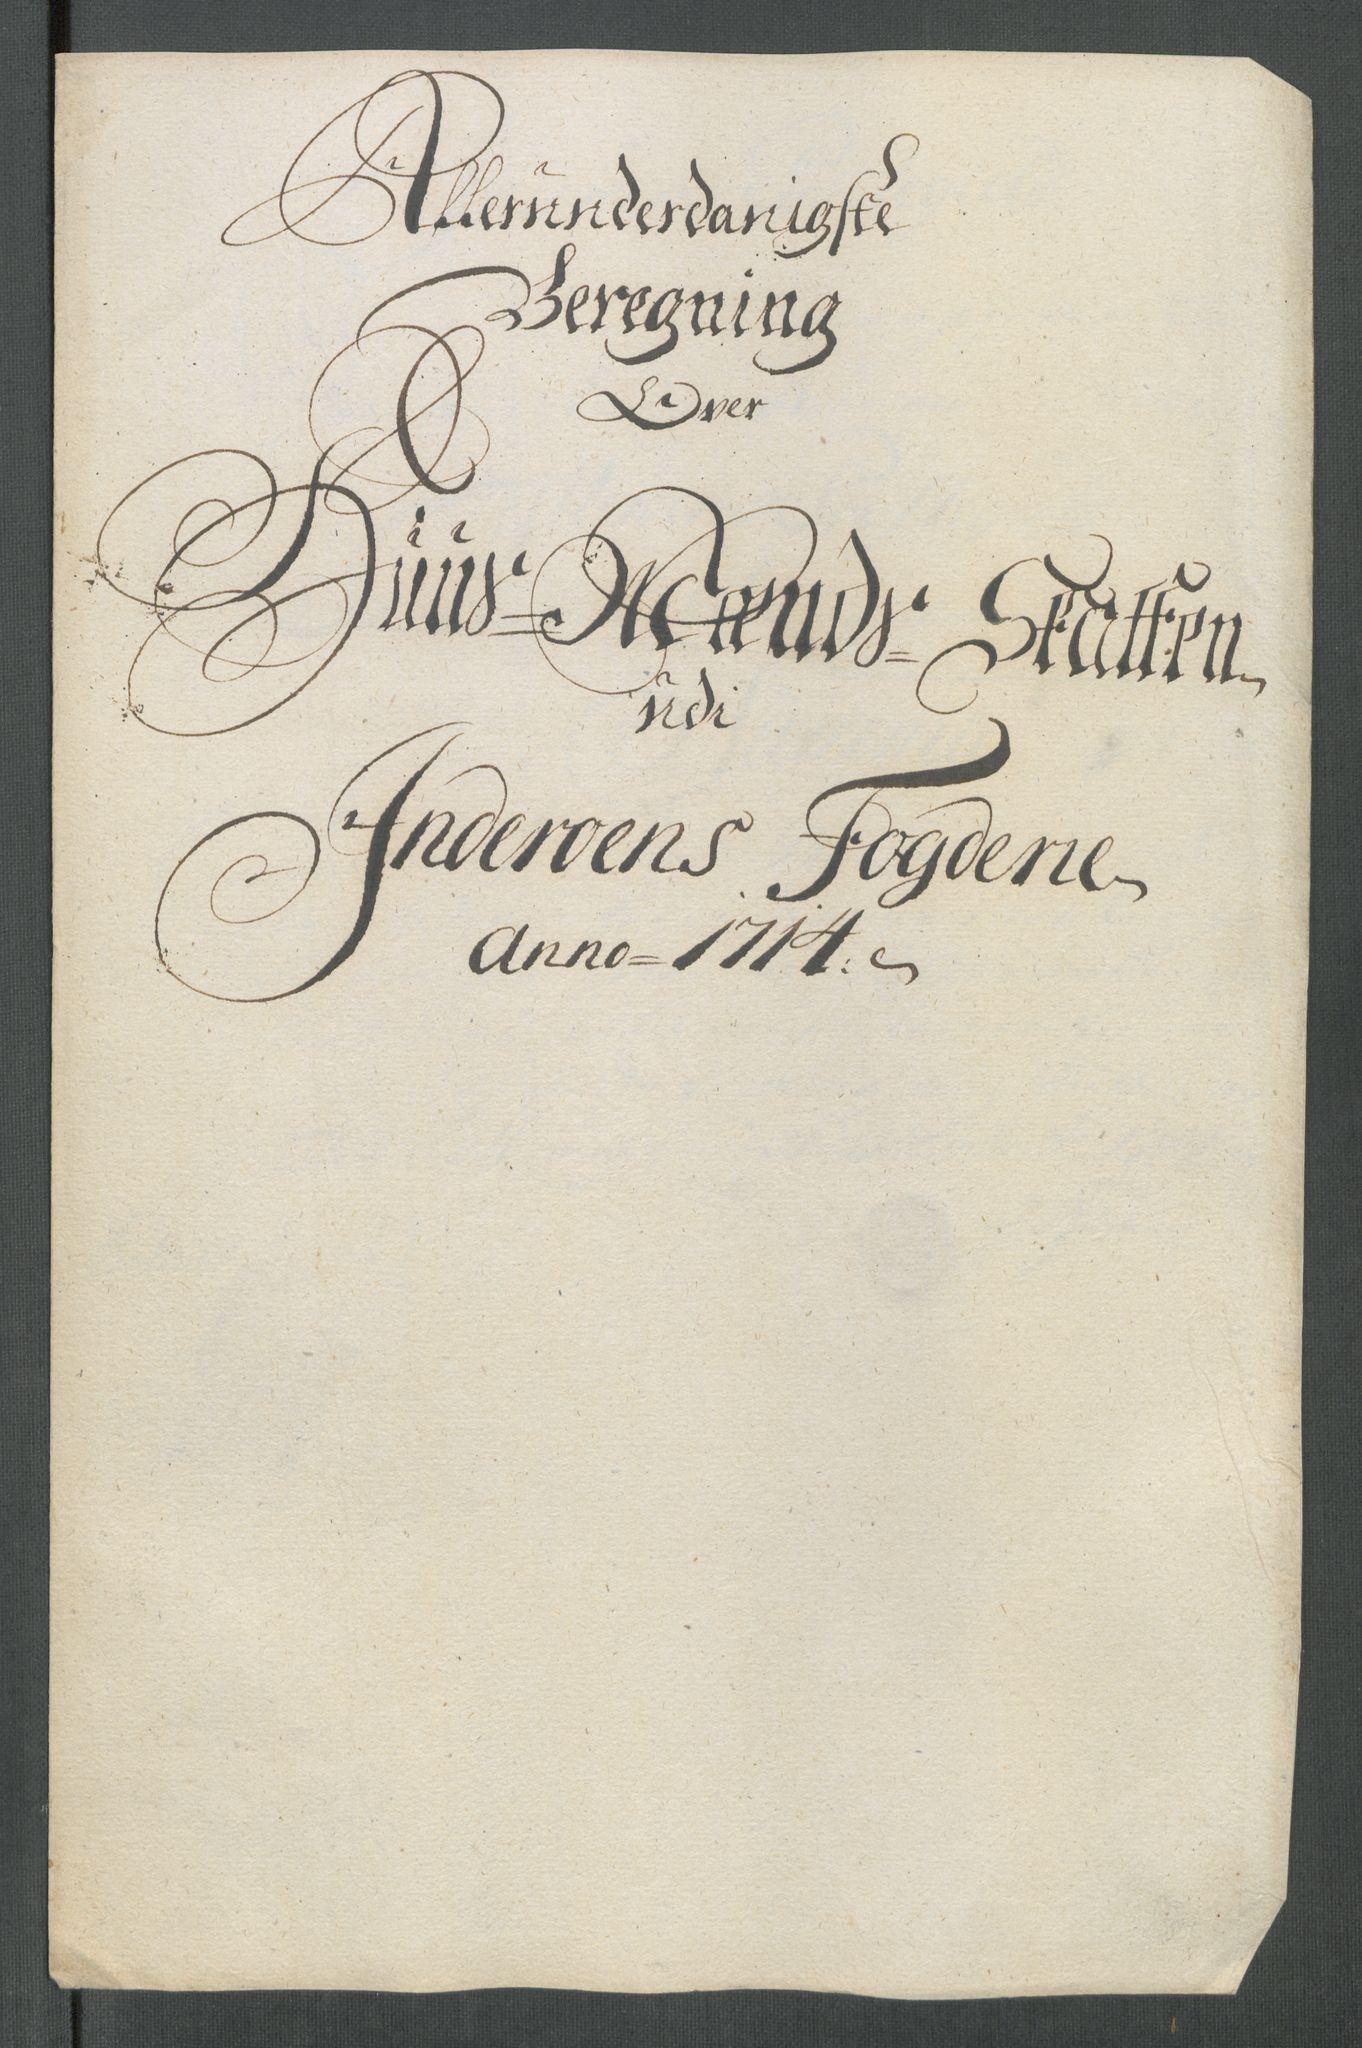 Allerunderdanigste
Beregning
Over
Huus=Mænds=Skatten
udi
Inderoens Fogderie
Anno=1714.